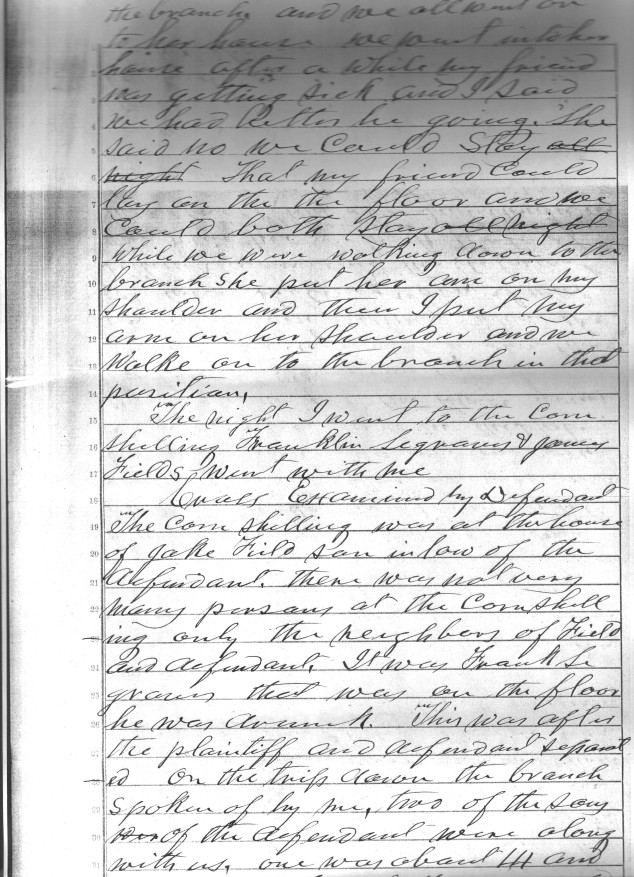 the branch and we all went on
to her house we went into her
house after a while my friend
was getting sick and I said
we had better be going. She
said no we could stay all
night That my friend could
lay on the the floor and we
could both stay all night
while we were walking down to the
branch she put her arm on my
shoulder and then I put my
arm on her shoulder and we
walke on to the branch in that
position.
"The night I went to the Corn
shelling Franklin Segraves & James
Fields went with me
Cross Examined by Defendant
"The Corn shelling was at the house
of Jake Field son in law of the
defendant. there was not very
many persons at the Corn shell
ing only the neighbors of Field
and defendant. It was Frank Se
graves that was on the floor
he was drunk "This was after
the plaintiff and defendant separat
ed on the trip down the branch
spoken of by me, two of the sons
of the defendant were along
with us, one was about 14 and